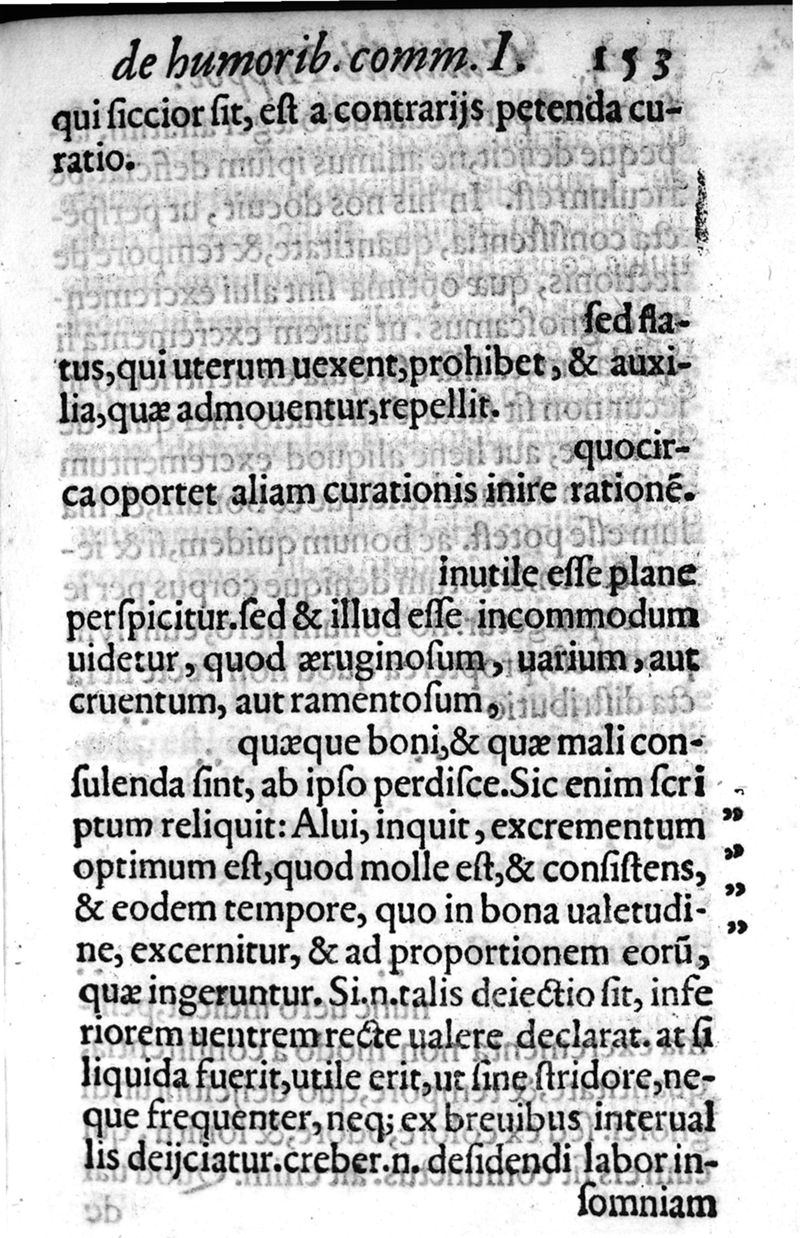 de humorib. comm. I. 153
qui ſiccior ſit, eſt a contrarijs petenda cu-
ratio.
ſed fla-
tus,qui uterum uexent,prohibet, & auxi-
lia,quæ admouentur,repellit.
quocir-
ca oportet aliam curationis inire rationẽ.
inutile eſſe plane
perſpicitur.ſed & illud eſſe incommodum
uidetur, quod æruginoſum, uarium, aut
cruentum, aut ramentoſum,
quæque boni,& quæ mali con-
ſulenda ſint, ab ipſo perdiſce.Sic enim ſcri
ptum reliquit: Alui, inquit, excrementum "
optimum eſt,quod molle eſt,& conſiſtens, "
& eodem tempore, quo in bona ualetudi- "
ne, excernitur, & ad proportionem eorũ, "
quæ ingeruntur. Si.n.talis deiectio ſit, infe
riorem uentrem recte ualere declarat. at ſi
liquida fuerit,utile erit,ut ſine ſtridore,ne-
que frequenter, neq; ex breuibus interual
lis deijciatur.creber.n. deſidendi labor in-
ſomniam